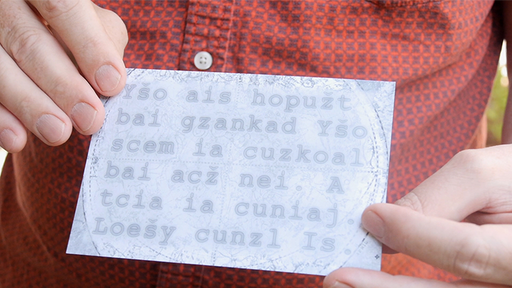 Yšo ais hopužt
bai gzankad Yšo
scem ia cuzkoal
bai acž nei. A
tcia ia cuniaj.
Loešy cunzl Is.